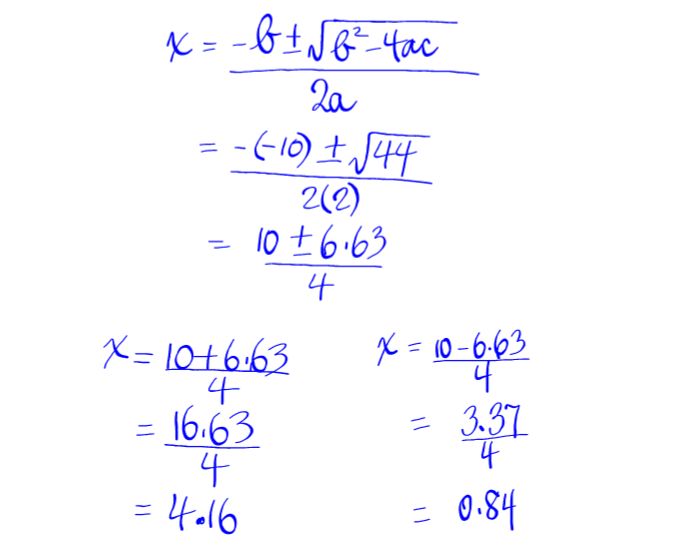 x = -b ± √b² - 4ac
2a
= -(-10) ± √44
2(2)
= 10 ± 6.63
4
x = 10 + 6.63
4
= 16.63
4
= 4.16
x = 10 - 6.63
4
= 3.37
4
= 0.84